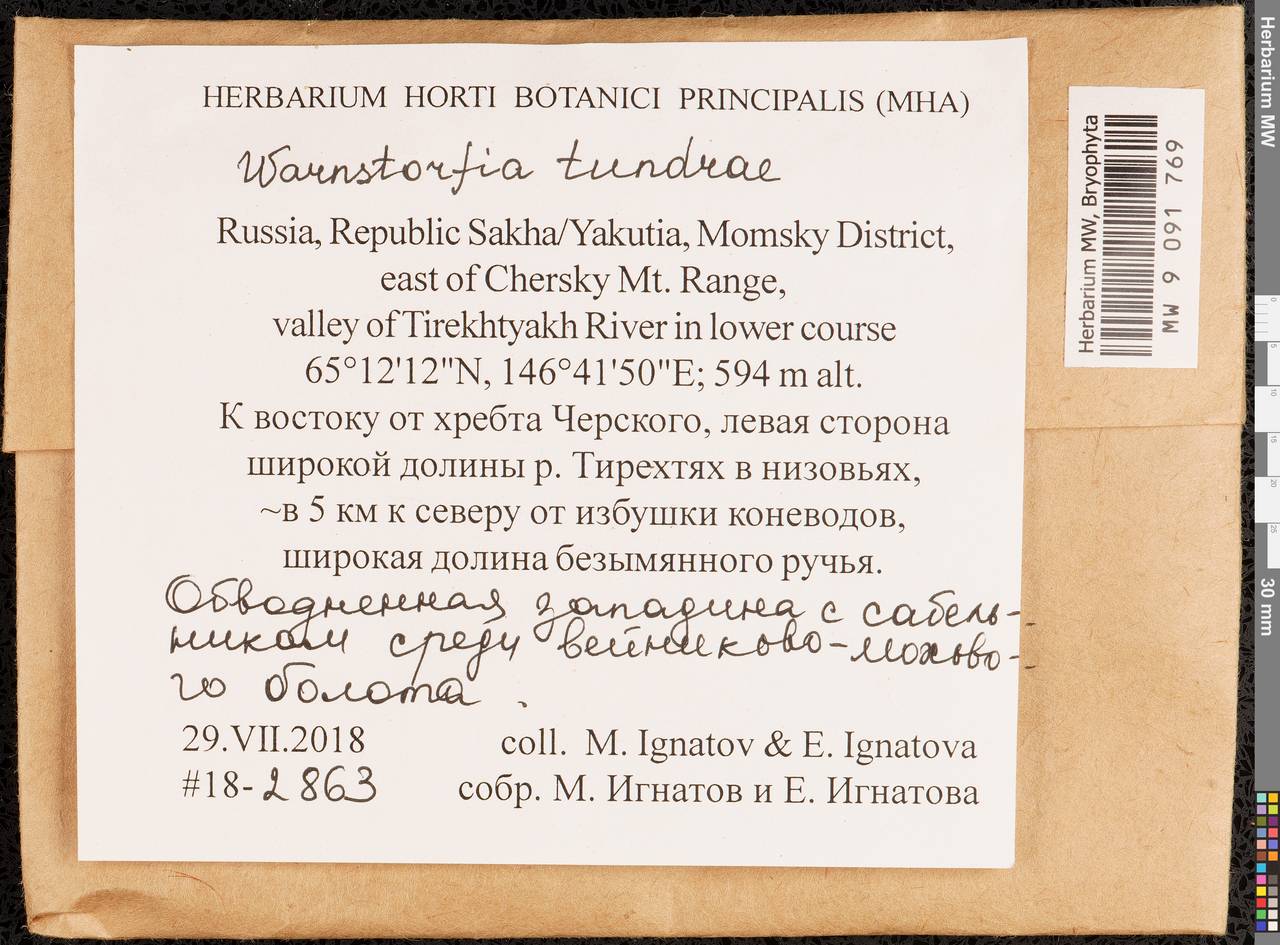 HERBARIUM HORTI BOTANICI PRINCIPALIS (MHA)
Warnstorfia tundrae
Russia, Republic Sakha/Yakutia, Momsky District,
east of Chersky Mt. Range,
valley of Tirekhtyakh River in lower course
65°12'12"N, 146°41'50"E; 594 m alt.
К востоку от хребта Черского, левая сторона
широкой долины р. Тирехтях в низовьях,
~в 5 км к северу от избушки коневодов,
широкая долина безымянного ручья.
Обводненная западина с сабель-
ником среди вейниково-мохово-
го болота.
29.VII.2018 coll. M. Ignatov & E. Ignatova
#18-2863 собр. М. Игнатов и Е. Игнатова
Herbarium MW, Bryophyta
MW 9 091 769
Herbarium MW
0 5 10 15 20 25
30 mm